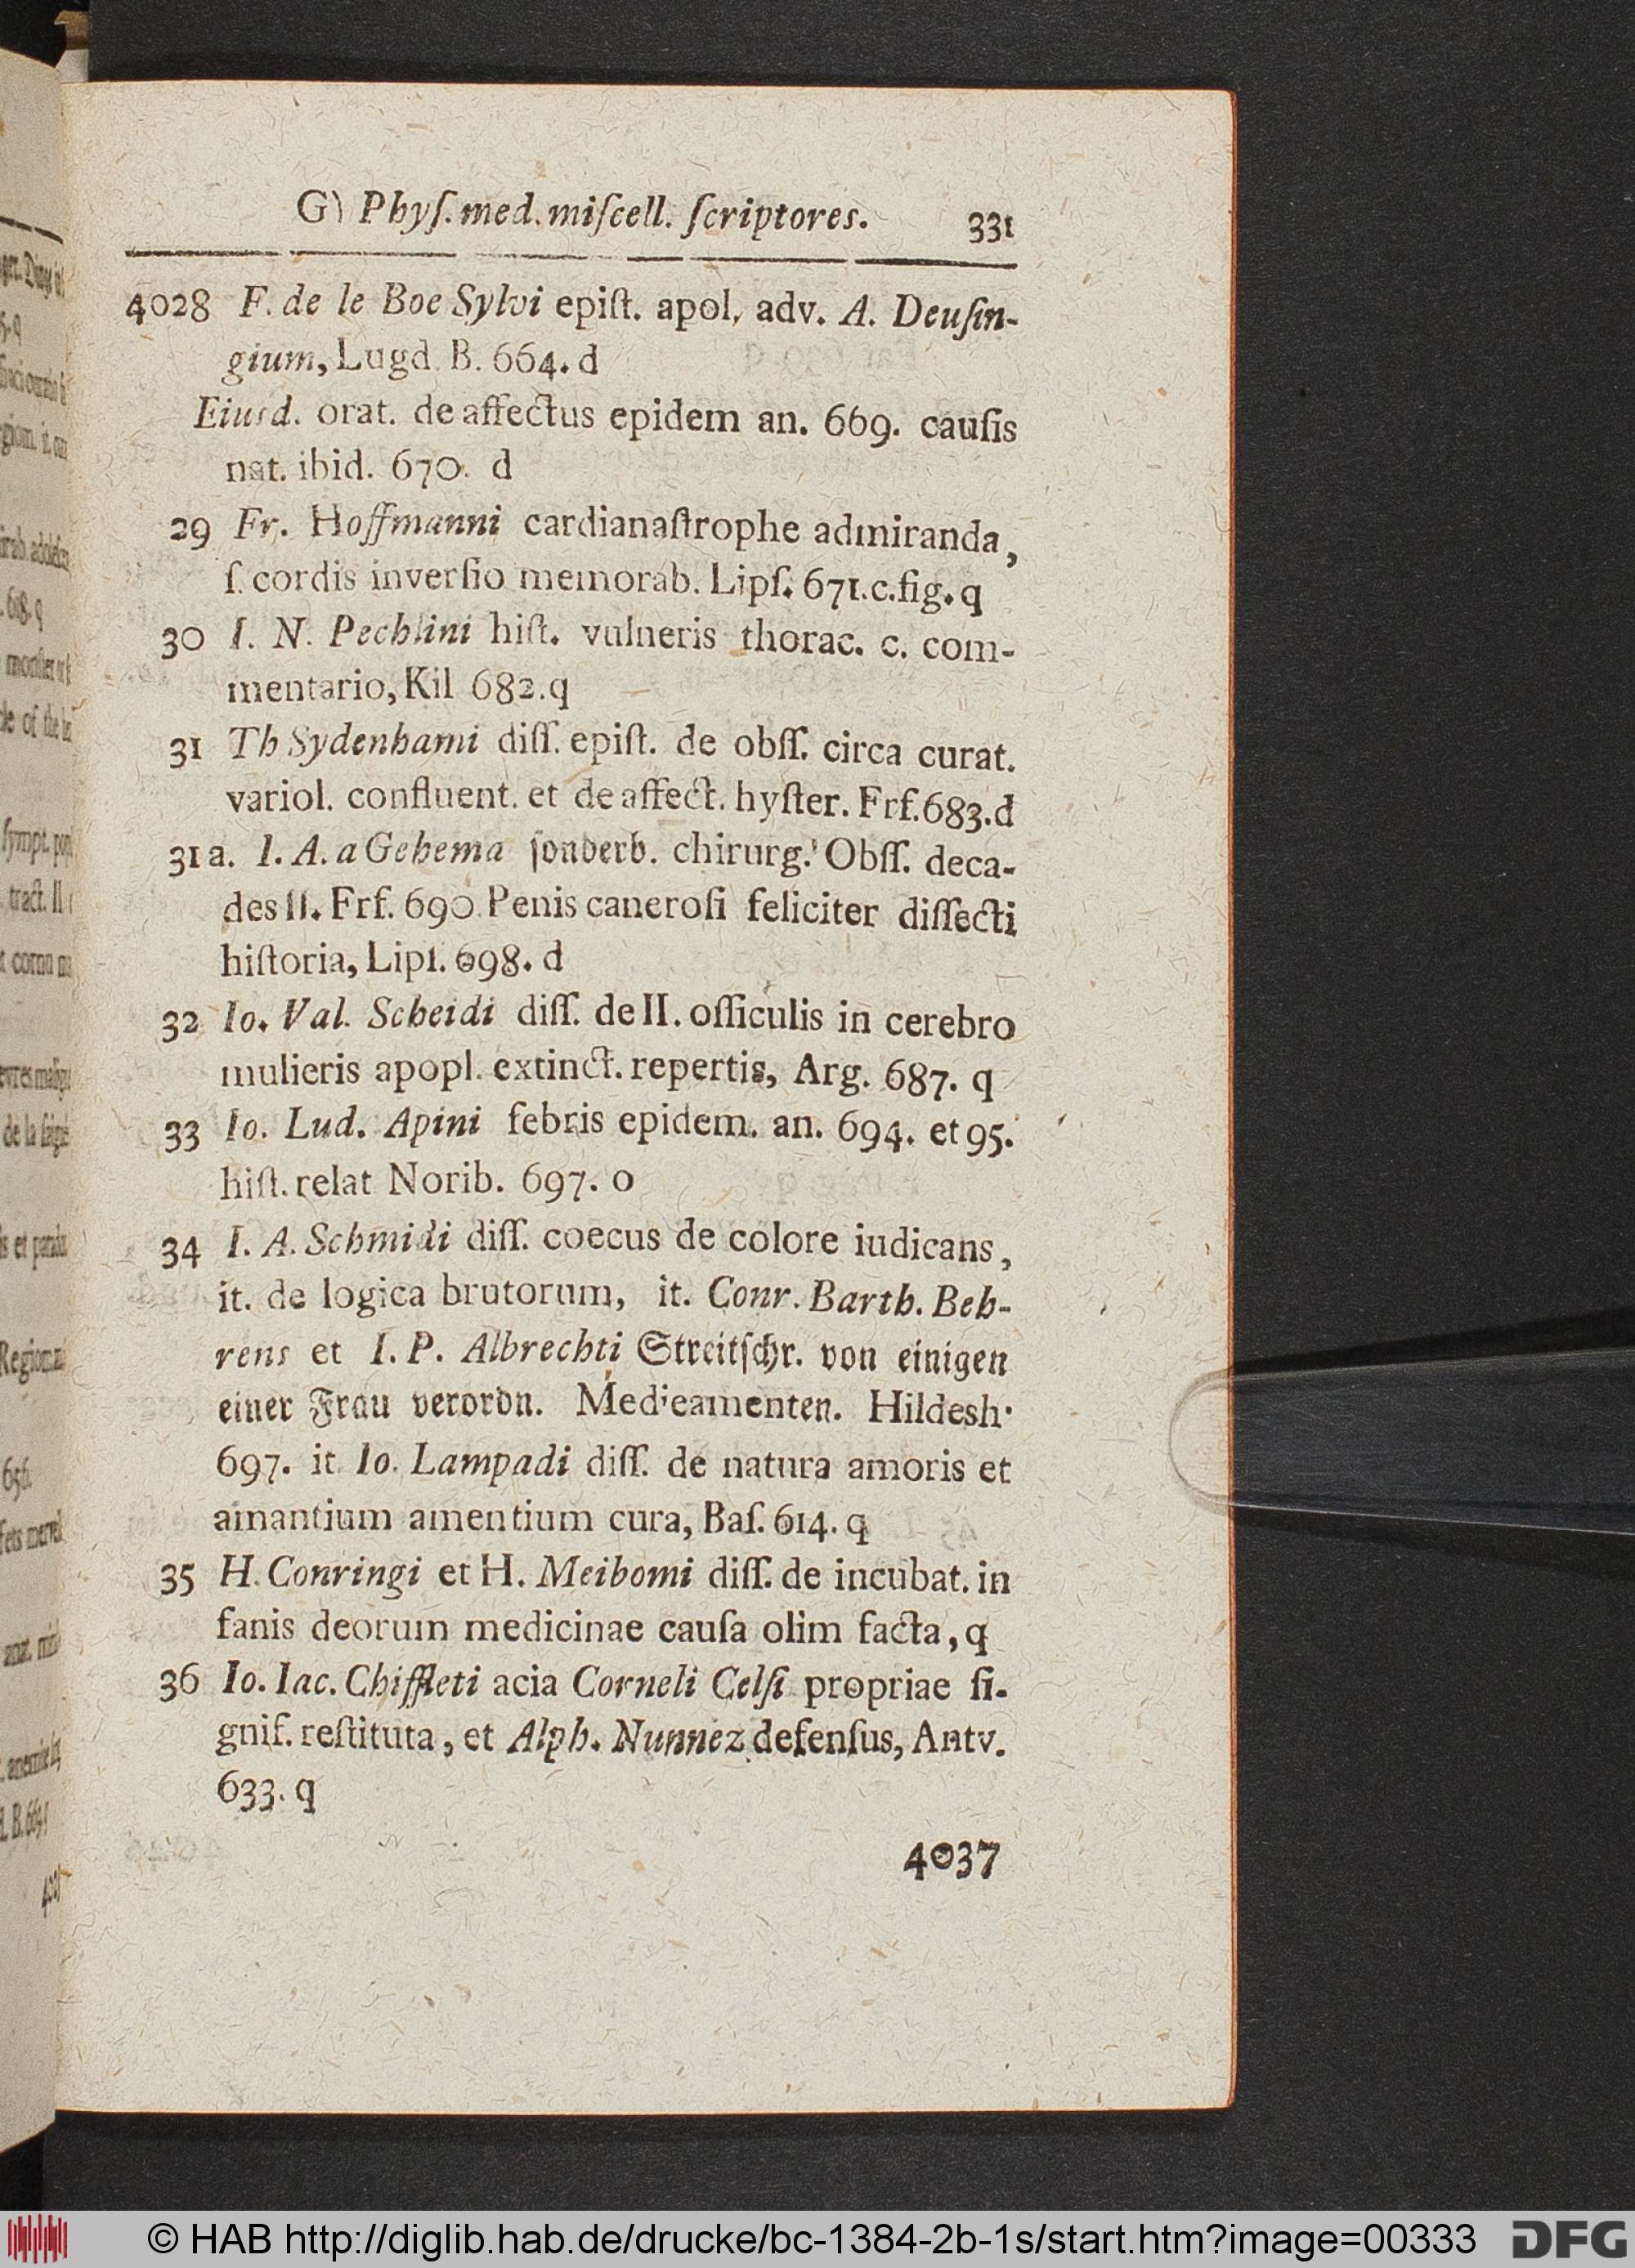 G) Phyſ. med. miſcell. ſcriptores. 331
4028 F. de le Boe Sylvi epiſt. apol. adv. A. Deuſin-
gium, Lugd. B. 664. d
Eiusd. orat. de affectus epidem an. 669. cauſis
nat. ibid. 670. d
29 Fr. Hoffmanni cardianaſtrophe admiranda,
ſ. cordis inverſio memorab. Lipſ. 671. c. fig. q
30 I. N. Pechlini hiſt. vulneris thorac. c. com-
mentario, Kil 682. q
31 Th Sydenhami diſſ. epiſt. de obſſ. circa curat.
variol. confluent. et de affect. hyſter. Frf. 683. d
31 a. I. A. a Gehema ſonderb. chirurg. Obſſ. deca-
des II. Frf. 690. Penis caneroſi feliciter diſſecti
hiſtoria, Lipſ. 698. d
32 Io. Val. Scheidi diſſ. de II. oſſiculis in cerebro
mulieris apopl. extinct. repertis, Arg. 687. q
33 Io. Lud. Apini febris epidem. an. 694. et 95.
hiſt. relat Norib. 697. o
34 I. A. Schmidi diſſ. coecus de colore iudicans,
it. de logica brutorum, it. Conr. Barth. Beh-
rens et I. P. Albrechti Streitſchr. von einigen
einer Frau verordn. Medieamenten. Hildesh.
697. it Io. Lampadi diſſ. de natura amoris et
amantium amentium cura, Baſ. 614. q
35 H. Conringi et H. Meibomi diſſ. de incubat. in
fanis deorum medicinae cauſa olim facta, q
36 Io. Iac. Chiffleti acia Corneli Celſi propriae ſi-
gnif. reſtituta, et Alph. Nunnez defenſus, Antv.
633. q
4037
© HAB http://diglib.hab.de/drucke/bc-1384-2b-1s/start.htm?image=00333 DFG